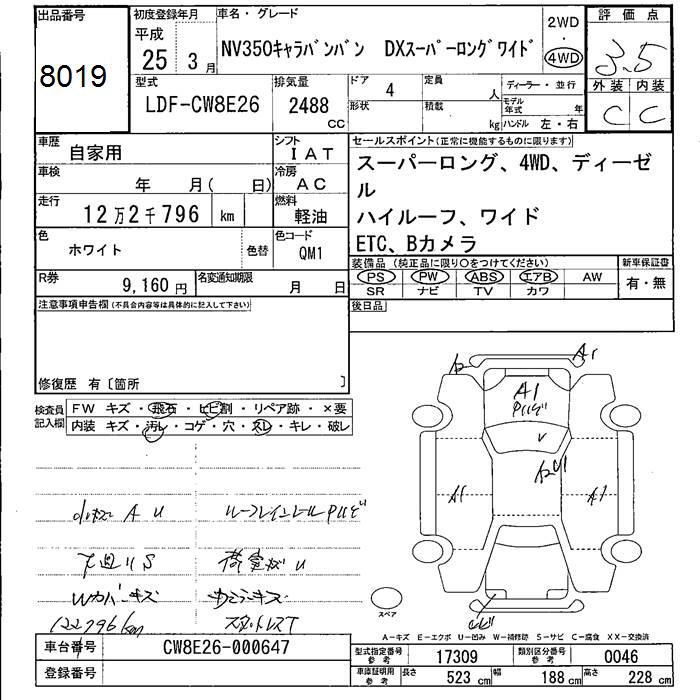 出品番号
8019
初度登録年月
平成
25 3月
車名・グレード
NV350キャラバンバン DXスーパーロングワイド
2WD
・
4WD
評価点
3.5
外装 内装
C C
型式
LDF-CW8E26
排気量
2488
CC
ドア 4
定員 人
ディーラー・並行
形状
積載 kg
モデル年式 年
ハンドル 左・右
車歴
自家用
シフト
IAT
車検
年 月( 日)
冷房
AC
走行
12万2千796 km
燃料
軽油
色
ホワイト
色替
色コード
QM1
セールスポイント(正常に機能するものに限ります)
スーパーロング、4WD、ディーゼ
ル
ハイルーフ、ワイド
ETC、Bカメラ
R券
9,160円
名変通知期限
月 日
装備品(純正品に限り○をつけてください)
PS PW ABS エアB AW
SR ナビ TV カワ
新車保証書
有・無
後日品
注意事項申告欄(不具合内容等は具体的に記入して下さい)
修復歴 有〔箇所 〕
検査員
記入欄
FW キズ・飛石・ヒビ割・リペア跡・×要
内装 キズ・汚レ・コゲ・穴・スレ・キレ・破レ
A1
A1
V
A1
A1
小キズ A U
ルーフレインレール
下廻りS
荷室
Wカバーキズ
スタットレスT
122796km
スペア
A-キズ E-エクボ U-凹み W-補修跡 S-サビ C-腐食 XX-交換済
車台番号
CW8E26-000647
登録番号
型式指定番号
参考
17309
類別区分番号
参考
0046
車庫証明用
参考
長さ 523 cm
幅 188 cm
高さ 228 cm